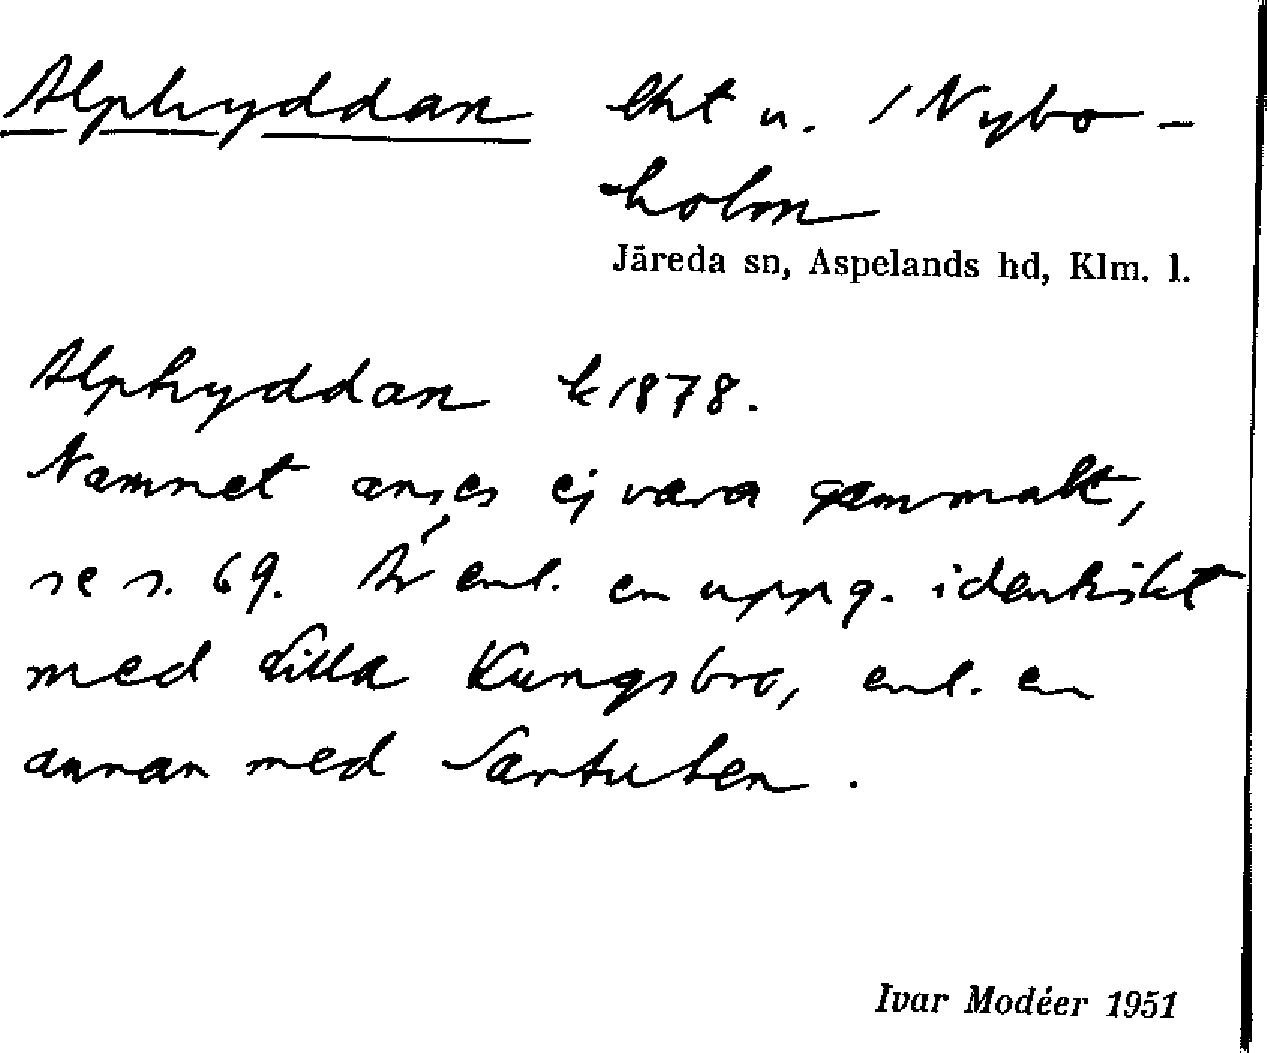 Alphyddan lht u. /Nybo-
holm
Järeda sn, Aspelands hd, Klm. l.
Alphyddan k 1878.
Namnet anses ej vara gammalt,
se s. 69. Är enl. en uppg. identiskt
med Lilla Kungsbro, enl. en
annan med
Ivar Modéer 1951